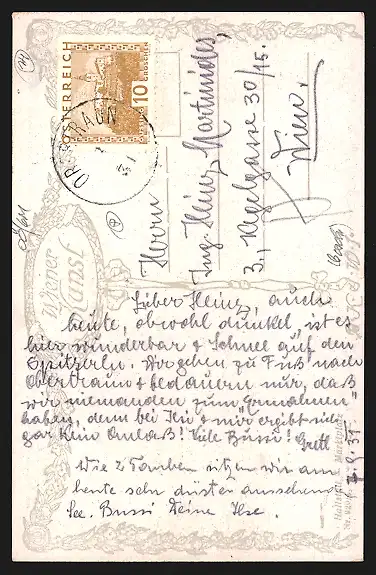 ÖSTERREICH
10
GROSCHEN
OBERTRAUN
Herrn
Ing. Heinz Martinides,
3., Kegelgasse 30/15.
Wien.
Wiener
Kunst
Lieber Heinz, auch
heute, obwohl dunkel, ist es
hier wunderbar & Schnee auf den
Spitzerln. Wir gehen zu Fuß nach
Obertraun & bedauern nur, daß
wir niemanden zum "
haben, denn bei Ilse & mir ergibt sich
gar kein Anlaß! Viele Bussi! Gretl
Wie 2 Tauben sitzen wir am
heute sehr düster aussehenden
See. Bussi Deine Ilse.
9. 37.